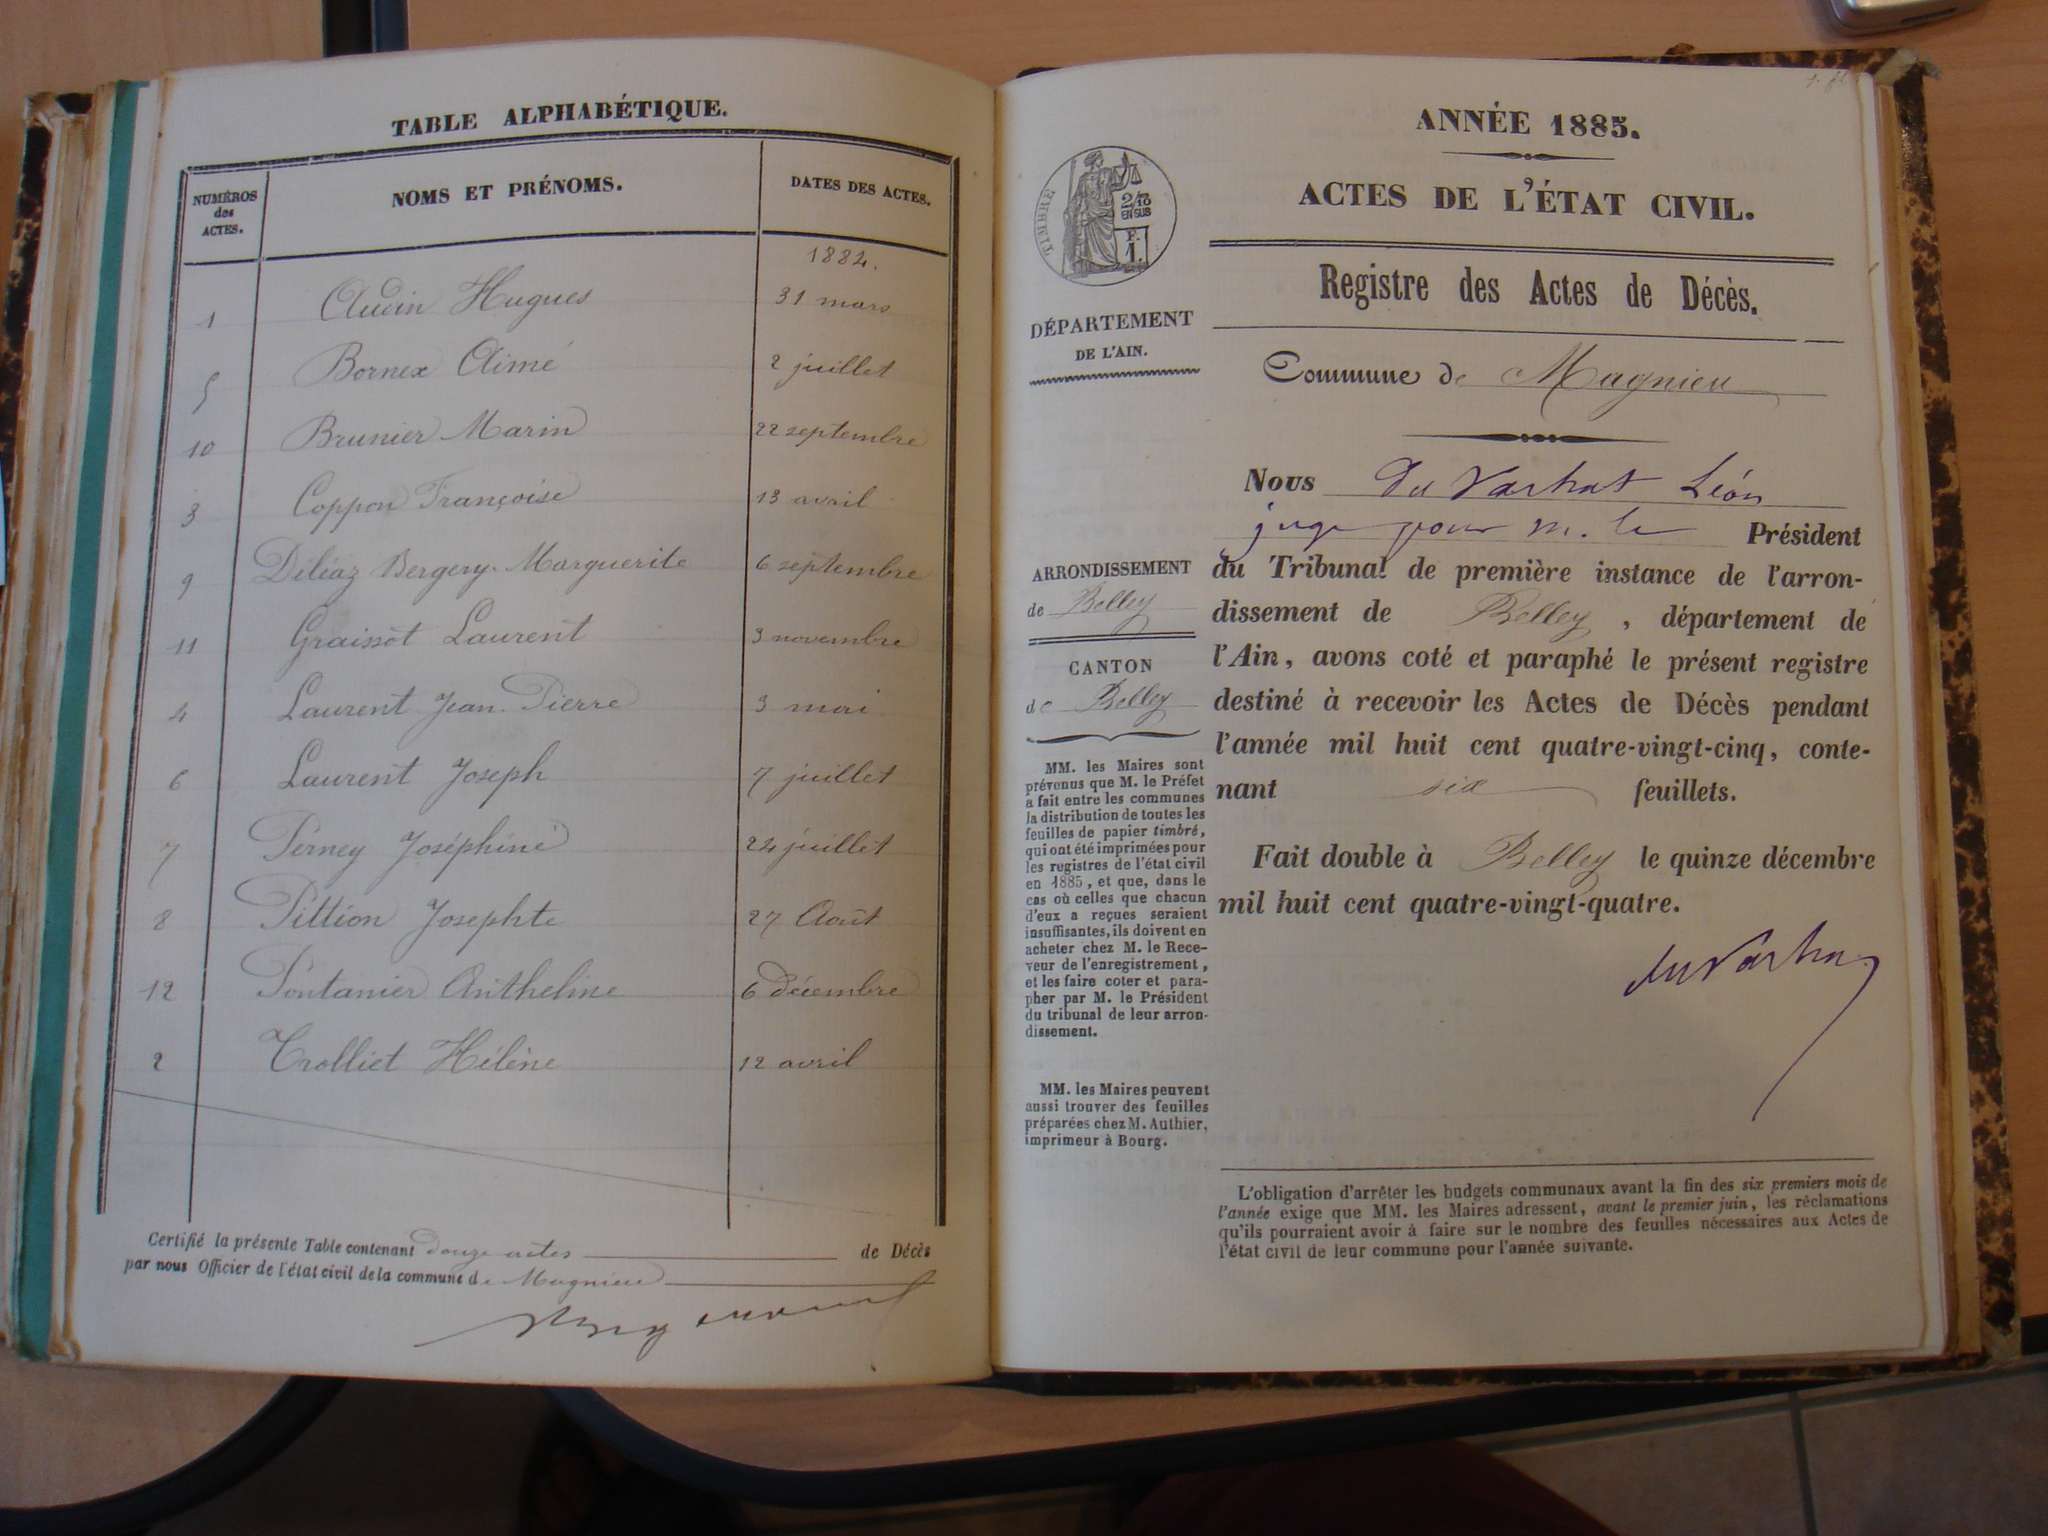 TABLE ALPHABÉTIQUE.
NUMÉROS des ACTES.
NOMS ET PRÉNOMS.
DATES DES ACTES.
1884.
1 Audin Hugues 31 mars
5 Bornex Aimé 2 juillet
10 Brunier Marin 22 septembre
3 Coppon Françoise 13 avril
9 Déliaz Bergery Marguerite 6 septembre
11 Graissot Laurent 3 novembre
4 Laurent Jean Pierre 3 mai
6 Laurent Joseph 7 juillet
7 Perney Joséphine 24 juillet
8 Pittion Josephte 27 Août
12 Pontanier Anthelme 6 décembre
2 Trolliet Hélène 12 avril
Certifié la présente Table contenant douze actes de Décès
par nous Officier de l'état civil de la commune de Magnieu
ANNÉE 1885.
ACTES DE L'ÉTAT CIVIL.
Registre des Actes de Décès.
TIMBRE
2/10
EN SUS
F.
1.
DÉPARTEMENT
DE L'AIN.
Commune de Magnieu
Nous Léon
juge pour M. le Président
du Tribunal de première instance de l'arron-
dissement de Belley, département de
l'Ain, avons coté et paraphé le présent registre
destiné à recevoir les Actes de Décès pendant
l'année mil huit cent quatre-vingt-cinq, conte-
nant six feuillets.
Fait double à Belley le quinze décembre
mil huit cent quatre-vingt-quatre.
ARRONDISSEMENT
de Belley
CANTON
de Belley
MM. les Maires sont
prévenus que M. le Préfet
a fait entre les communes
la distribution de toutes les
feuilles de papier timbré,
qui ont été imprimées pour
les registres de l'état civil
en 1885, et que, dans le
cas où celles que chacun
d'eux a reçues seraient
insuffisantes, ils doivent en
acheter chez M. le Rece-
veur de l'enregistrement,
et les faire coter et para-
pher par M. le Président
du tribunal de leur arron-
dissement.
MM. les Maires peuvent
aussi trouver des feuilles
préparées chez M. Authier,
imprimeur à Bourg.
L'obligation d'arrêter les budgets communaux avant la fin des six premiers mois de
l'année exige que MM. les Maires adressent, avant le premier juin, les réclamations
qu'ils pourraient avoir à faire sur le nombre des feuilles nécessaires aux Actes de
l'état civil de leur commune pour l'année suivante.